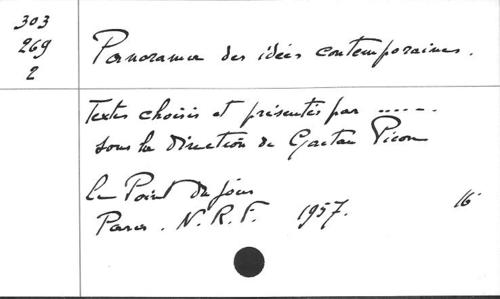 303
269
2
Panorama des idées contemporaines.
Textes choisis et présentés par ......
sous la direction de Gaetan Picon
Le Point du jour
Paris. N.R.F. 1957. 16